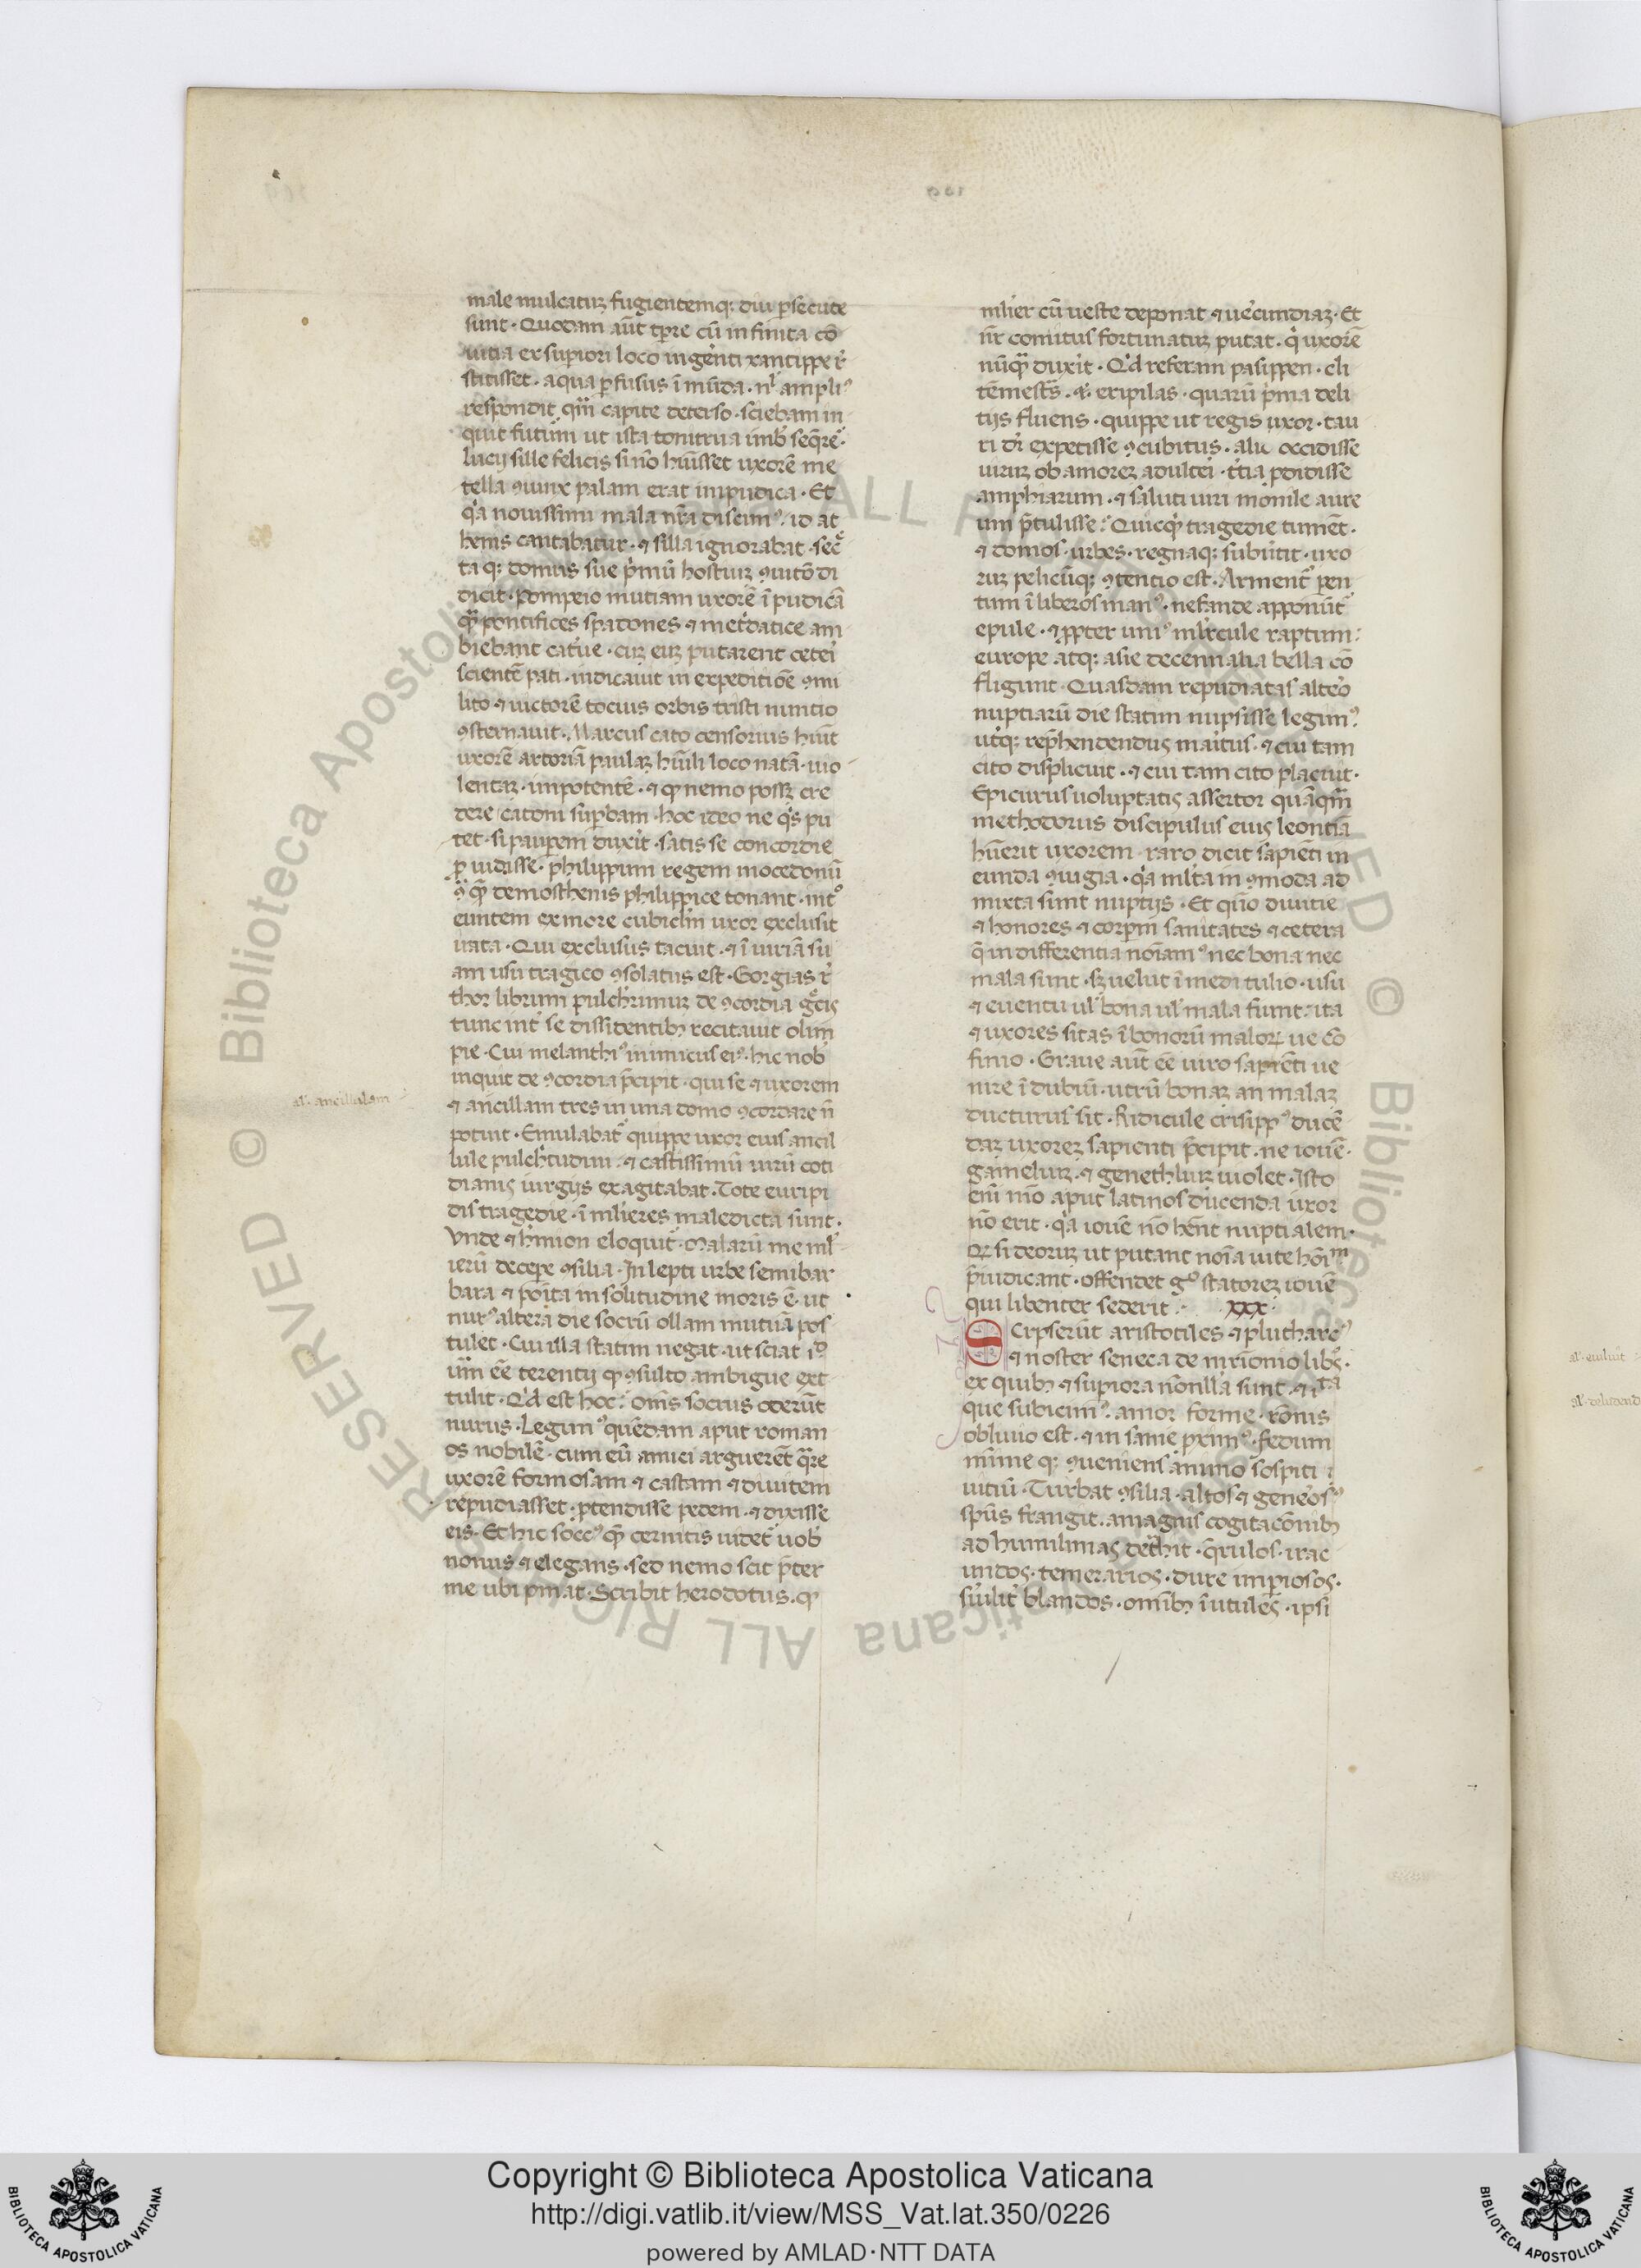 male mulcatuʒ fugientemqꝫ diu ꝑsecute
sunt · Quodam aūt tꝑre cū infinita cō
uitia ex supiori loco ingēti xantippe r̄
stitisset · aqua ꝑfusus īmūda · nl̄ ampliꝰ
respondit qm̄ capite deterso · sciebam in
quit futuꝝ ut ista tonitrua imb̄ seq̄re͛ ·
lucij sille felicis si nō hūisset uxorē me
tella ꝯiunx palam erat impudica · Et
q̓a nouissimi mala nr̄a discimꝰ · id at
henis cantabatur · ⁊ silla ignorabat · sec̄
ta qꝫ domus sue p̓mū hostiuʒ ꝯuitō di
dicit · Pompeio mutiam uxorē īpudicā
qm̄ pontifices spadones ⁊ met̓datice am
biebant cat̓ue · cuʒ euʒ putarent cetei
scientē pati · indicauit in expeditiōe ꝯmi
lito ⁊ uictorē tocius orbis tristi nuntio
ꝯsternauit · Marcus cato censorius hūit
uxorē artoriā paulaʒ hūili loco natā · uio
lentaʒ · impotentē · ⁊ ꝙ nemo possʒ cre
dere catoni suꝑbam · hoc ideo ne q̓s pu
tet · si pauꝑem duxit · satis se concordie
ꝓuidisse · philippum regem mocedonū
ꝯ̄ quē demosthenis philippice tonant · intᵒ
euntem ex more cubiclm̄ uxor exclusit
irata · Qui exclusus tacuit · ⁊ īiuriā su
am usu tragico ꝯsolatus est · Gorgias r̄
thor librum pulch̓rimuʒ de ꝯcordia g̃cis
tunc int̄ se dissidentibꝫ recitauit olim
pie · Cui melanthiꝰ inimicus eiꝰ · hic nob̄
inquit de ꝯcordia p̄cipit · qui se ⁊ uxorem
⁊ ancillam tres in una domo ꝯcordare n̄
potuit · Emulabat͛ quippe uxor eius ancil
lule pulch̓tudini · ⁊ castissimū uirū coti
dianis iurgijs exagitabat · Tote euripi
dis tragedie · ī mlieres maledicta sunt ·
Vnde ⁊ h̓mion eloquit · Malarū me ml̄
ierū decepe ꝯsilia · In lepti urbe semibar
bara ⁊ poīta in solitudine moris ē · ut
nurꝰ altera die socrū ollam mutuā pos
tulet · Cui illa statim negat · ut sciat iᵈ
um̄ eē terentij ꝙ ꝯsulto ambigue ext
tulit · Q̓d est hoc · oms̄ socrus oderūt
nurus · Legimꝰ quēdam aput roman
os nobilē · cum eū amici arguerēt q̄re
uxorē formosam ⁊ castam ⁊ diuitem
repudiasset · ꝓtendisse pedem · ⁊ dixisse
eis · Et hic soccꝰ quē cernitis uidet͛ uob̄
nouus ⁊ elegans · sed nemo scit p̄ter
me ubi p̄mat · Scribit herodotus · ꝙ
al̓ · ancillulam
mlier cū ueste deponat ⁊ uēcundiaʒ · Et
nr̄ comicus fortunatuʒ putat · q̓ uxorē
nūqm̄ duxit · Q̓d referam pasippen · cli
tēmestē · ⁊ eripilas · quarū p̓ma deli
tijs fluens · quippe ut regis uxor · tau
ri dr̄ expetisse ꝯcubitus · alia occidisse
uiruʒ ob amoreʒ adulteri · t̓tia ꝑdidisse
amphiarum · ⁊ saluti uiri monile aure
um p̄tulisse · Quicq̓d tragedie tumēt ·
⁊ domos · urbes · regnaqꝫ subūtit · uxo
ruʒ pelicūqꝫ ꝯtentio est · Arment͛ pen
tum ī liberos manꝰ · nefande apponūt͛
epule · ⁊ ꝓpter uniꝰ ml̓ercule raptum ·
europe atqꝫ asie decennalia bella cō
fligunt · Quasdam repudiatas alteo
nuptiarū die statim nupsisse legimꝰ
ut̓qꝫ rep̄hendendus maitus · ⁊ cui tam
cito displicuit · ⁊ cui tam cito placuit ·
Epicurus uoluptatis assertor quāqm̄
methodorus discipulus eius leontiā
hūerit uxorem · raro dicit sapiēti in
eunda ꝯiugia · q̓a mlta in ꝯmoda ad
mixta sunt nuptijs · Et quō diuitie
⁊ honores ⁊ corpm̄ sanitates ⁊ cetera
q̄ indifferentia noīamꝰ nec bona nec
mala sunt · sʒ uelut ī meditulio · usu
⁊ euentu ul̓ bona ul̓ mala fiunt · ita
⁊ uxores sitas ī bonorū maloꝝ ue cō
finio · Graue aūt eē uiro sapiēti ue
nire ī dubiū · utrū bonaʒ an malaʒ
ducturus sit · Ridicule crisippꝰ ducē
daʒ uxoreʒ sapienti p̄cipit · ne iouē ·
gameliuʒ · ⁊ genethliuʒ uiolet · Isto
eīm mō aput latinos ducenda uxor
nō erit · q̓a iouē nō hēnt nuptialem ·
Qꝝ si deoruʒ ut putant noīa uite hōīm
p̄iudicant · offendet gᵒ statoreʒ iouē
qui libenter sederit · xxx ·
Scrpserūt aristotiles ⁊ plutharcꝰ
⁊ noster seneca de mr̄ionio libꝰ ·
ex quibꝫ ⁊ supiora nōnlla sunt · ⁊ ita
que subicimꝰ · amor forme · rōnis
obliuio est · ⁊ insanie ꝓximꝰ · fedum
mīme qꝫ ꝯueniens animo sospiti
uitiū · Turbat ꝯsilia · altos ⁊ geneosꝰ
spūs frangit · amagnis cogitacōnibꝫ
ad humilimas det̓hit · q̄rulos · irac
undos · temerarios · dure imꝑiosos ·
s̓uilit̓ blandos · omībꝫ īutiles · ipsi
Copyright © Biblioteca Apostolica Vaticana
http://digi.vatlib.it/view/MSS_Vat.lat.350/0226
powered by AMLAD·NTT DATA
BIBLIOTECA APOSTOLICA VATICANA
BIBLIOTECA APOSTOLICA VATICANA